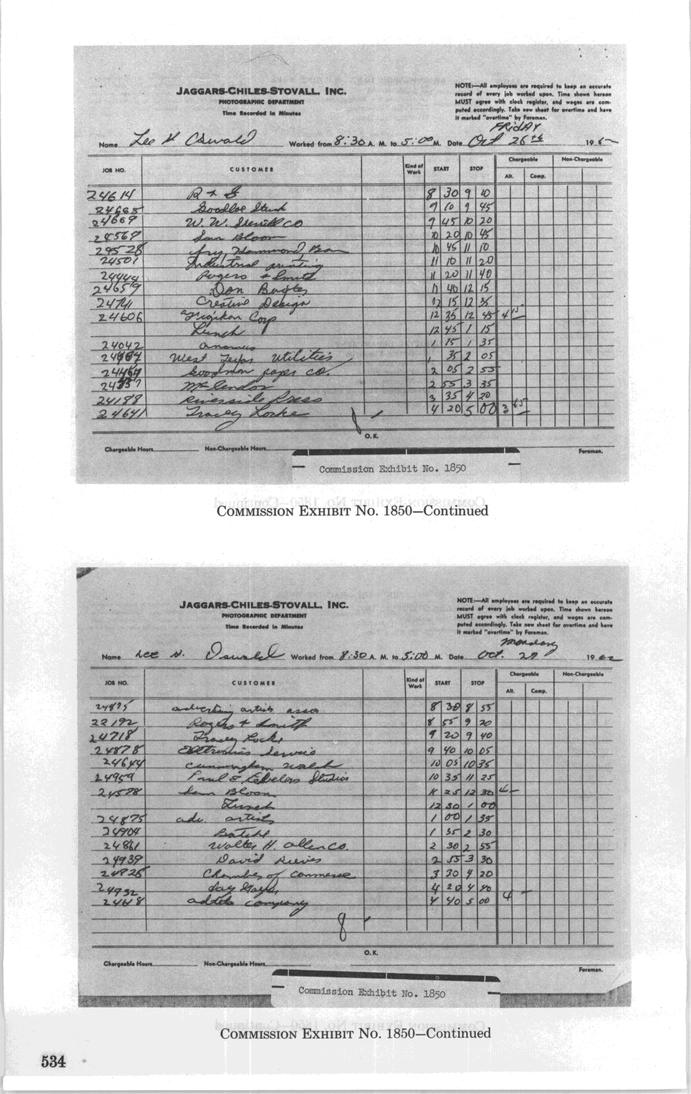 JAGGARS-CHILES-STOVALL, INC.
PHOTOGRAPHIC DEPARTMENT
Time Recorded in Minutes
NOTE:—All employees are required to keep an accurate
record of every job worked upon. Time shown hereon
MUST agree with clock register, and wages are com-
puted accordingly. Take new sheet for overtime and have
it marked "overtime" by Foreman.
FRiDAY
Name Lee H Oswald Worked from 8:30 A. M. to 5:00 M. Date Oct 26th 1962
JOB NO. CUSTOMER Kind of Work START STOP Chargeable Non-Chargeable
Alt. Comp.
24614 R & G 8 30 9 10
9 10 9 45
24669 W. W. Sherrill Co 9 45 10 20
24569 Sam Bloom 10 20 10 45
29528 10 45 11 10
24501 Industrial printing 11 10 11 20
Rogers & Smith 11 20 11 40
24659 Don Baxter 11 40 12 15
24741 Creative Design 12 15 12 35
24606 Corp 12 35 12 45
Lunch 12 45 1 15
24042 1 15 1 35
West Texas Utilities 1 35 2 05
Goodman paper co. 2 05 2 55
McLendon 2 55 3 35
24188 Riverside Press 3 35 4 20
24641 Tracey Locke 4 20 5 00
8
O.K.
Chargeable Hours Non-Chargeable Hours Foreman.
Commission Exhibit No. 1850
COMMISSION EXHIBIT No. 1850—Continued
JAGGARS-CHILES-STOVALL, INC.
PHOTOGRAPHIC DEPARTMENT
Time Recorded in Minutes
NOTE:—All employees are required to keep an accurate
record of every job worked upon. Time shown hereon
MUST agree with clock register, and wages are com-
puted accordingly. Take new sheet for overtime and have
it marked "overtime" by Foreman.
Monday
Name Lee H. Oswald Worked from 8:30 A. M. to 5:00 M. Date Oct. 29 1962
JOB NO. CUSTOMER Kind of Work START STOP Chargeable Non-Chargeable
Alt. Comp.
24875 advertising artists assoc 8 30 8 55
22192 Rogers & Smith 8 55 9 20
24718 Tracey Locke 9 20 9 40
24878 Electronics Service 9 40 10 05
24644 Cunningham Walsh 10 05 10 35
24959 Paul & Studios 10 35 11 25
24578 Sam Bloom 11 25 12 30 4
Lunch 12 30 1 00
24875 adv. artists 1 00 1 35
24904 1 35 2 30
24861 Walter H. Allen Co. 2 30 2 55
24939 David 2 55 3 30
24825 Chamber of commerce 3 30 4 20
24932 4 20 4 40
company 4 40 5 00 4
8
O.K.
Chargeable Hours Non-Chargeable Hours Foreman.
Commission Exhibit No. 1850
COMMISSION EXHIBIT No. 1850—Continued
534